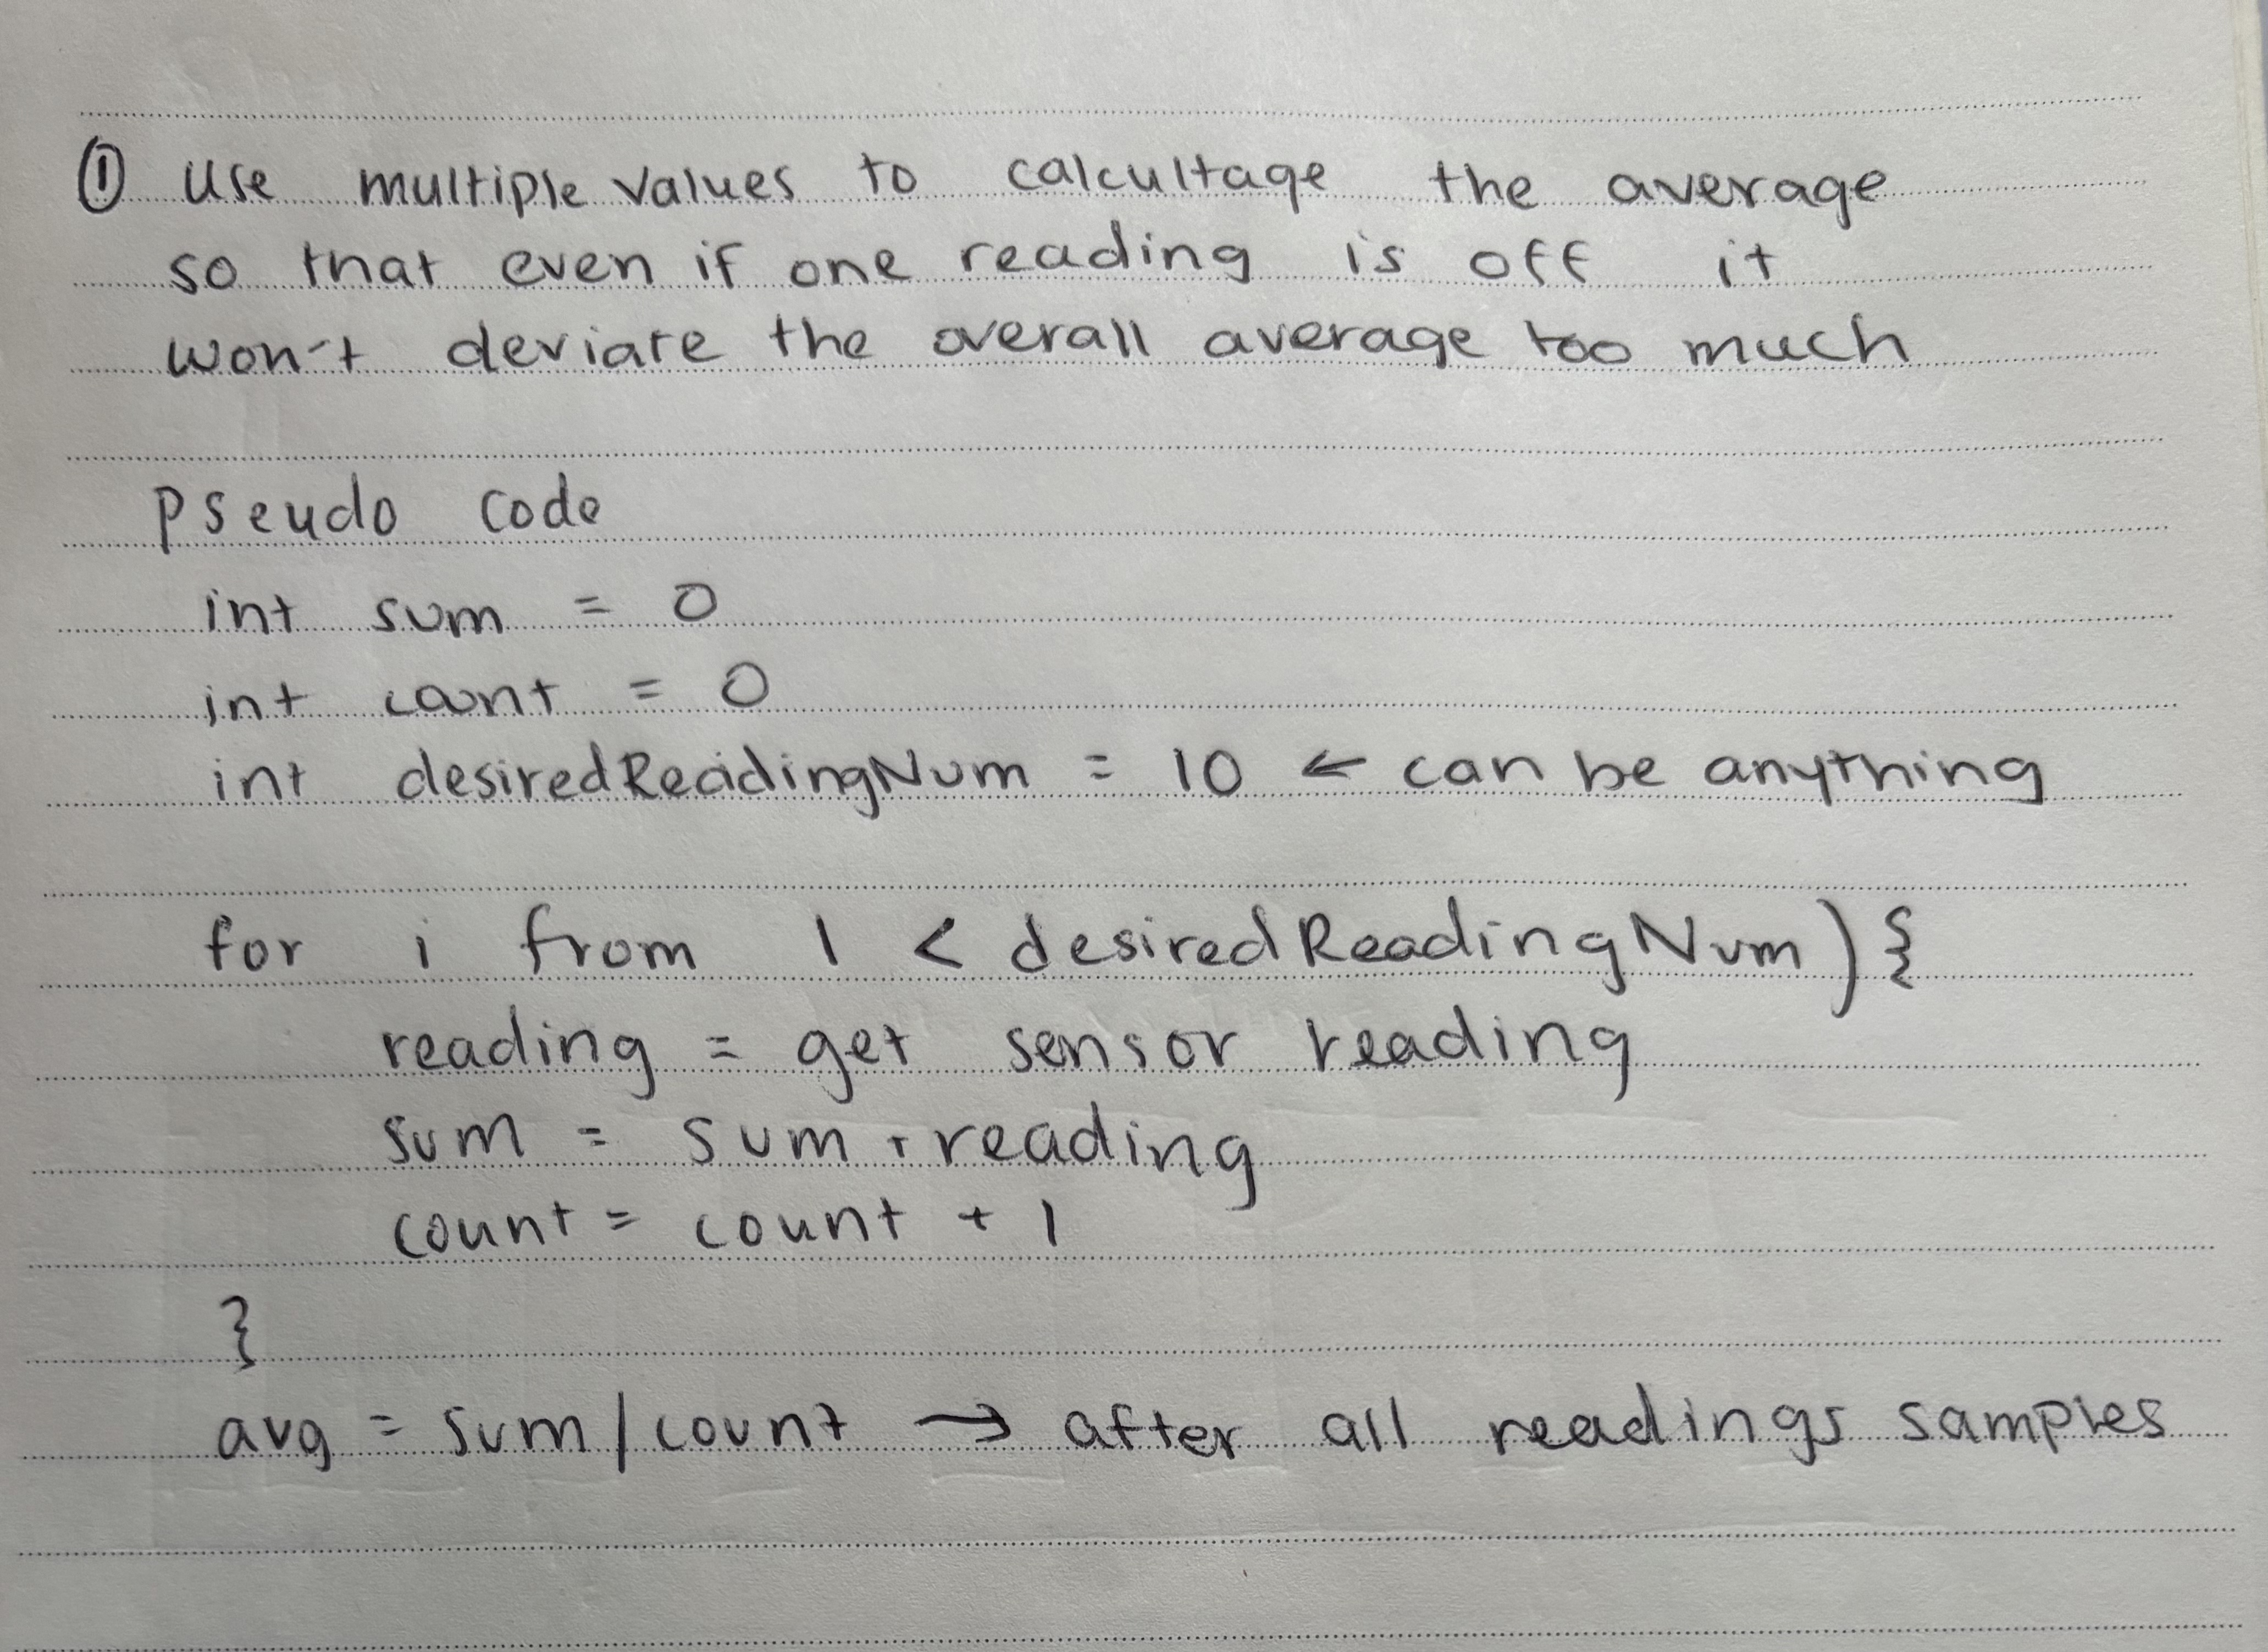 ① Use multiple values to calcultage the average
so that even if one reading is off it
won't deviate the overall average too much
Pseudo code
int sum = 0
int count = 0
int desiredReadingNum = 10 ← can be anything
for i from 1 < desiredReadingNum) {
reading = get sensor reading
sum = sum + reading
count = count + 1
}
avg = sum / count → after all readings samples